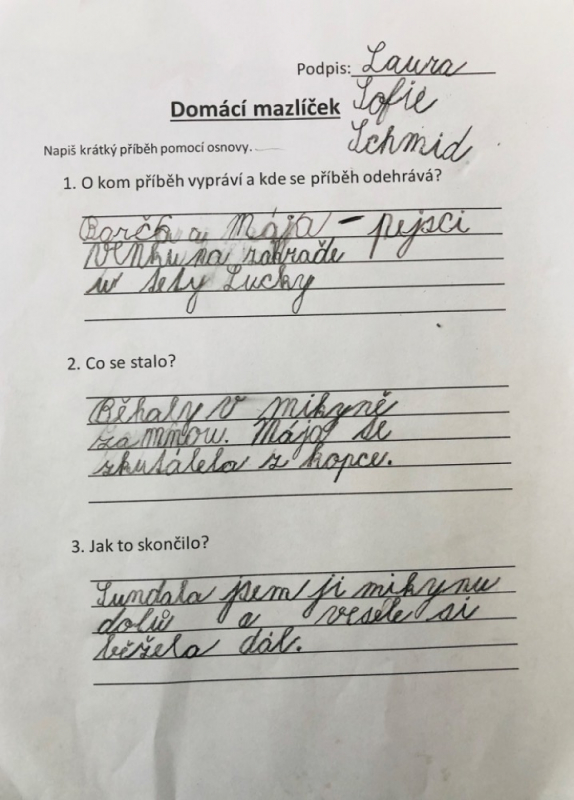 Podpis: Laura
Domácí mazlíček Sofie
Schmid
Napiš krátký příběh pomocí osnovy.
1. O kom příběh vypráví a kde se příběh odehrává?
a Mája – pejsci
Venku na zahradě
u tety Lucky
2. Co se stalo?
Běhaly v mikyně
za mnou. Mája se
zkutálela z kopce.
3. Jak to skončilo?
Sundala jsem ji mikynu
dolů a vesele si
běžela dál.